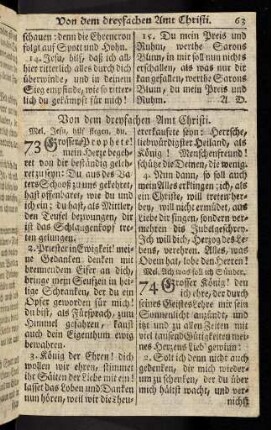 Von dem dreyfachen Amt Christi. 63
schauen: denn die Ehrencron
folgt auf Spott und Hohn.
14. Jesu, hilf, daß ich all-
hier ritterlich alles durch dich
überwinde, und in deinem
Sieg empfinde, wie so ritter-
lich du gekämpft für mich!
15. Du mein Preis und
Ruhm, werthe Sarons
Blum, in mir soll nun nichts
erschallen, als was mir dir
kan gefallen, werthe Sarons
Blum, du mein Preis und
Ruhm. A. D.
Von dem dreyfachen Amt Christi.
Mel. Jesu, hilf siegen, du.
73 Grosser Prophete!
mein Herze begeh-
ret von dir beständig geleh-
ret zu seyn: Du, aus des Va-
ters Schooß zu uns gekehret,
hast offenbaret, wie du und
ich ein; du hast, als Mittler,
den Teufel bezwungen, dir
ist das Schlangenkopf-tre-
ten gelungen.
2. Priester in Ewigkeit! mei-
ne Gedanken denken mit
brennendem Eifer an dich,
bringe mein Seufzen in hei-
lige Schranken, der du ein
Opfer geworden für mich!
du bist, als Fürsprach, zum
Himmel gefahren, kanst
auch dein Eigenthum ewig
bewahren.
3. König der Ehren! dich
wollen wir ehren, stimmet
ihr Säiten der Liebe mit ein!
lasset das Loben und Danken
nun hören, weil wir die theu-
ererkaufete seyn: Herrsche,
liebwürdigster Heiland, als
König! Menschenfreund!
schütze die Deinen, die wenig.
4. Nun dann, so soll auch
mein Alles erklingen; ich, als
ein Christe, will treten her-
für, will nicht ermüdet, dein
Liebe dir singen, sondern ver-
mehren die Jubelgeschrey.
Ich will dich, Herzog des Le-
bens, verehren. Alles, was
Odem hat, lobe den Herren!
Mel. Ach was soll ich Sünder.
74 Grosser König! den
ich ehre, der durch
seines Geistes Lehre mir sein
Sonnenlicht anzündt, und
itzt und zu allen Zeiten mit
viel tausend Gütigkeiten mei-
nes Herzens Lieb gewinnt:
2. Solt ich denn nicht auch
gedenken, dir mich wieder-
um zu schenken, der du über
mich hältst wacht, und ver-
nichst